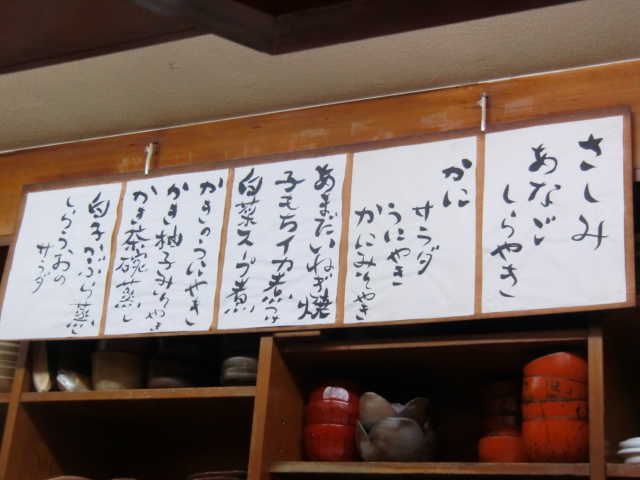 さしみ
あなご
しらやき
かに
サラダ
うにやき
かにみそやき
あまだいねぎ焼
子もちイカ煮つけ
白菜スープ煮
かきのうにやき
かき柚子みそやき
かき茶碗蒸し
白子かぶら蒸し
しらうおの
サラダ